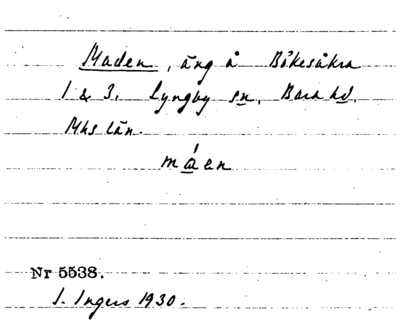 Maden, äng å Bökesåkra
1 & 3. Lyngby sn. Bara hd.
Mhs län.
máen
Nr 5538.
I. Ingers 1930.